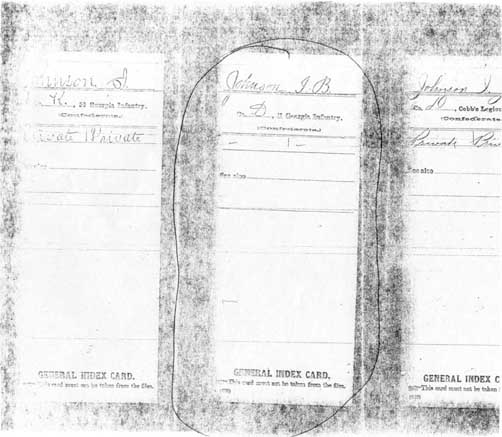 Johnson I.
K, 50 Georgia Infantry.
(Confederate.)
Private | Private
GENERAL INDEX CARD.
This card must not be taken from the files.
Johnson, I B
Co D, 11 Georgia Infantry.
(Confederate.)
– | –
See also
GENERAL INDEX CARD.
This card must not be taken from the files.
Johnson I.
D, Cobb's Legion
(Confederate
Private
See also
GENERAL INDEX C
This card must not be taken from the files